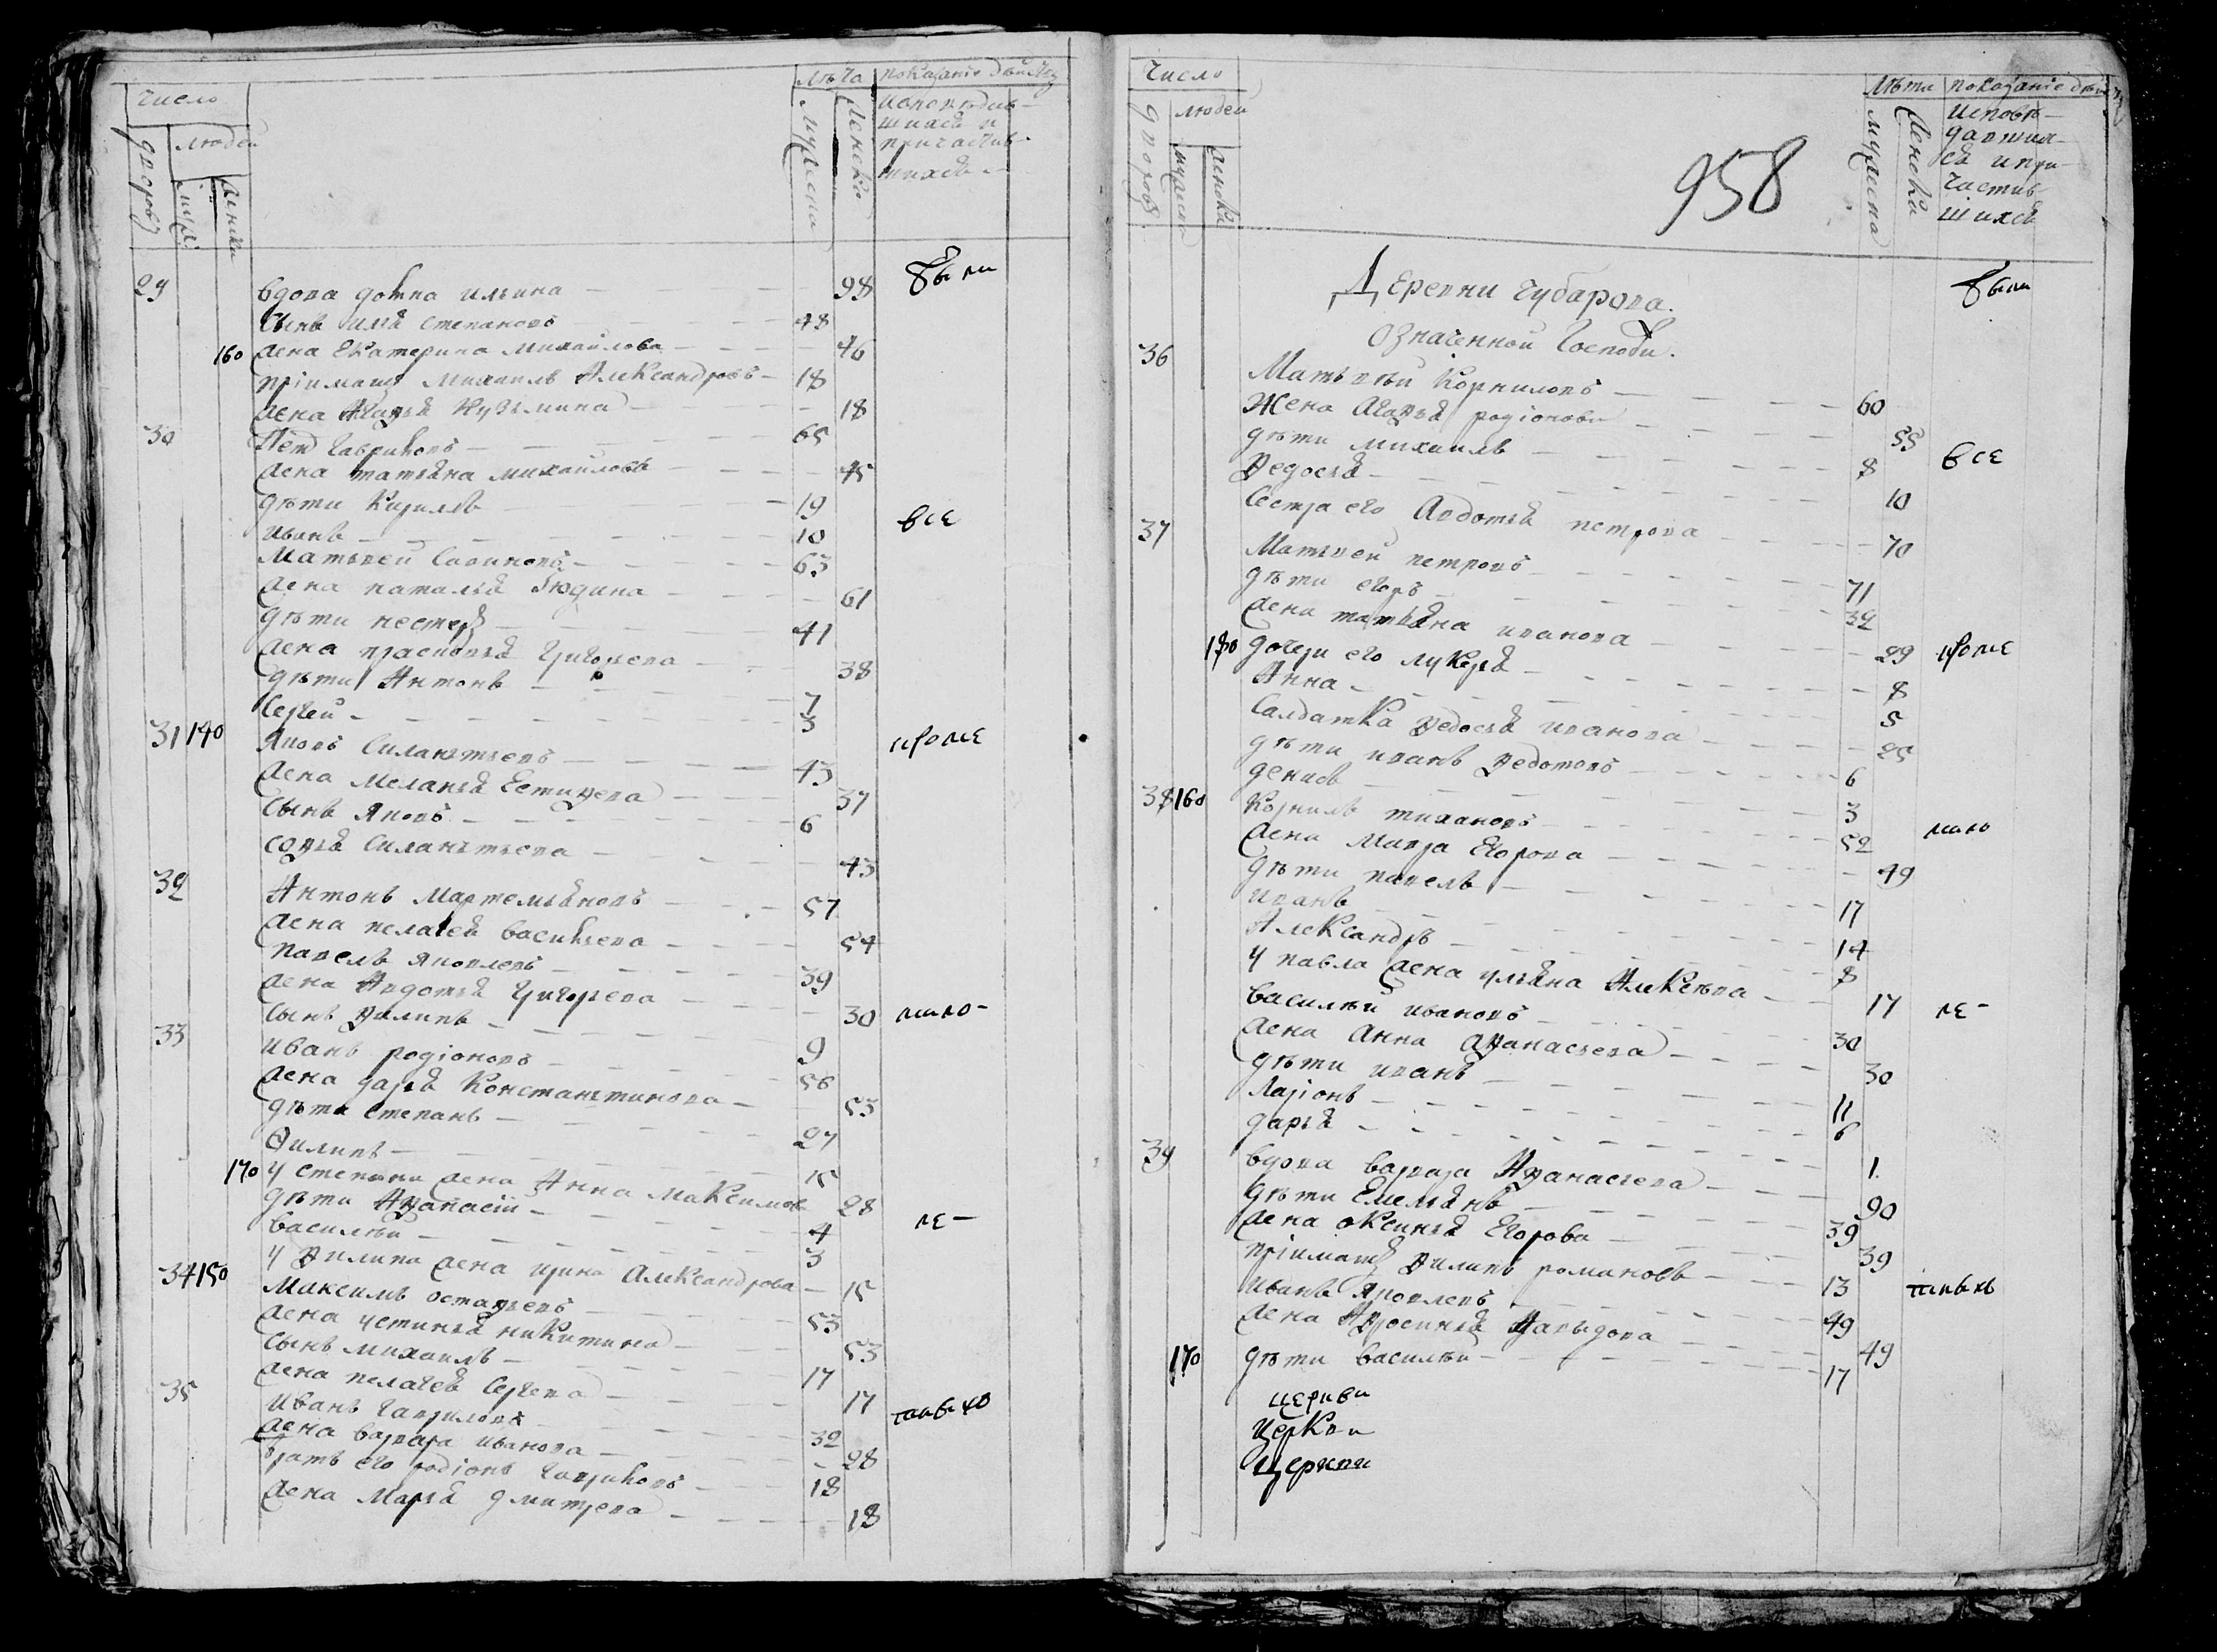 число
дворовъ
людей
муж:
женски
лѣта
мужеска
женска
показаніе дѣйст
исповѣдав-
шихся и
причастив-
шихся
29 вдова домна ильина 98 были
Сынъ илья степановъ 48
160 жена Екатерина михайлова 46
пріимашъ михаилъ Александровъ 18
жена Агафья Кузьмина 18
30 Петръ гавриловъ 65
жена татьяна михайлова 45
дѣти Кирилъ 19 все
иванъ 10
Матвей Савиновъ 63
жена наталья юдина 61
дѣти нестеръ 41
жена прасковья Григорева 38
дѣти Антонъ 7
Сергей 3
31 140 Яковъ Силантьевъ 43 кроме
жена меланья Естифева 37
Сынъ Яковъ 6
софья Силантьева 43
32 Антонъ Мартемьяновъ 57
жена пелагея васильева 54
павелъ Яковлевъ 39
жена Авдотья Григорева 30 мало-
Сынъ Филипъ 9
33 иванъ родіоновъ 56
жена дарья Константинова 53
дѣти степанъ 27
Филипъ 15
170 у степана жена Анна Максимова 28
дѣти Афанасій 4 ле-
василѣй 3
у Филипа жена ирина Александрова 15
34 150 Максимъ остафьевъ 53
жена устинья никитина 53
Сынъ михаилъ 17
жена пелагея Сергева 17
35 иванъ гавриловъ 32 тнихъ
жена варвара иванова 28
братъ его родіонъ гавриловъ 18
жена Марья дмитрева 18
число
дворовъ
людей
мужеска
женска
958
лѣта
мужеска
женска
показаніе дѣйст
исповѣ-
давших-
ся и при
частив-
шихся
Деревни чубарова. были
означенной Госпожи.
36 Матьвѣй Корниловъ 60
Жена Агафья родіонова 55
дѣти михаилъ 8 все
Федосья 10
Сестра его Авдотья петрова 70
37 Матьвей петровъ 71
дѣти егоръ 32
жена татьяна иванова 29 кроме
180 дочери его лукерья 8
Анна 5
Салдатка Федосья иванова 25
дѣти иванъ Федотовъ 6
денисъ 3
38 160 Корнилъ тихановъ 52 мало
жена Мавра Егорова 49
дѣти павелъ 17
иванъ 14
Александръ 8
у павла жена ульяна Алексѣва 17 ле-
василѣй ивановъ 30
жена анна афанасьева 30
дѣти иванъ 11
Ларіонъ 6
дарья 1.
39 вдова варвара Афанасьева 90
дѣти Емельянъ 39
жена оксинья Егорова 39
пріимашъ Филипъ романовъ 13 тнихъ
иванъ Яковлевъ 49
жена Афросинья давыдова 49
170 дѣти василѣй 17
церкви
Церкви
Церкви